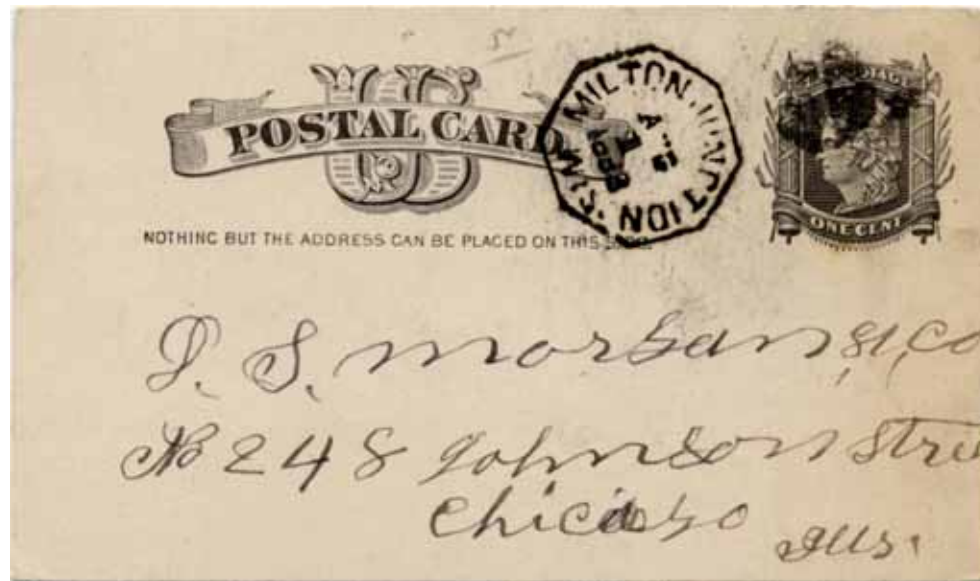 US
POSTAL CARD
NOTHING BUT THE ADDRESS CAN BE PLACED ON THIS
MILTON JUNCTION WIS.
ONE CENT
D. S. Morgan & Co
No 248 Johnson Stre
Chicago
Ills.